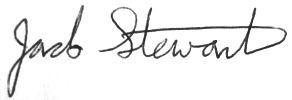 Jacob Stewart